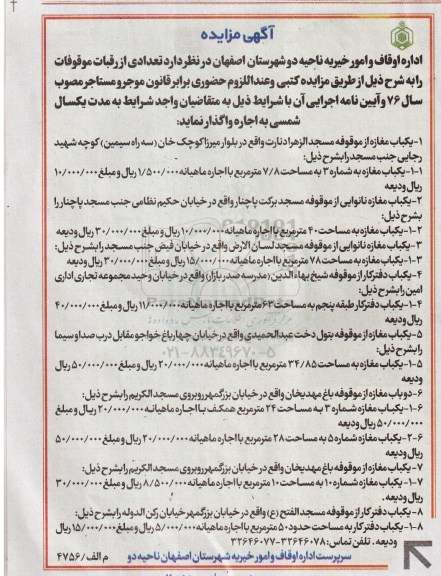 آگهی مزایده
اداره اوقاف و امور خیریه ناحیه دو شهرستان اصفهان در نظر دارد تعدادی از رقبات موقوفات
را به شرح ذیل از طریق مزایده کتبی و عنداللزوم حضوری برابر قانون موجر و مستاجر مصوب
سال ۷۶ و آیین نامه اجرایی آن با شرایط ذیل به متقاضیان واجد شرایط به مدت یکسال
شمسی به اجاره واگذار نماید:
۱-یکباب مغازه از موقوفه مسجد الزهرا دنارت واقع در بلوار میرزا کوچک خان (سه راه سیمین) کوچه شهید
رجایی جنب مسجد را بشرح ذیل:
۱-۱-یکباب مغازه به شماره ۳ به مساحت ۷/۸ مترمربع با اجاره ماهیانه ۱/۵۰۰/۰۰۰ ریال و مبلغ ۱۰/۰۰۰/۰۰۰
ریال ودیعه
۲-یکباب مغازه نانوایی از موقوفه مسجد برکت پاچنار واقع در خیابان حکیم نظامی جنب مسجد پاچنار را
بشرح ذیل:
۱-۲-یکباب مغازه به مساحت ۴۰ مترمربع با اجاره ماهیانه ۱۰/۰۰۰/۰۰۰ ریال و مبلغ ۳۰/۰۰۰/۰۰۰ ریال ودیعه
۳-یکباب مغازه نانوایی از موقوفه مسجد لسان الارض واقع در خیابان فیض جنب مسجد را بشرح ذیل:
۱-۳-یکباب مغازه به مساحت ۷۸ مترمربع با اجاره ماهیانه ۱۵/۰۰۰/۰۰۰ ریال و مبلغ ۳۰/۰۰۰/۰۰۰ ریال ودیعه
۴-یکباب دفتر کار از موقوفه شیخ بهاءالدین (مدرسه صدر بازار) واقع در خیابان وحید مجموعه تجاری اداری
امین را بشرح ذیل:
۱-۴-یکباب دفتر کار طبقه پنجم به مساحت ۶۳ مترمربع با اجاره ماهیانه ۱۱/۰۰۰/۰۰۰ ریال و مبلغ ۴۰/۰۰۰/۰۰۰
ریال ودیعه
۵-یکباب مغازه از موقوفه بتول دخت عبدالحمیدی واقع در خیابان چهارباغ خواجو مقابل درب صدا و سیما
را بشرح ذیل:
۱-۵-یکباب مغازه به مساحت ۳۴/۸۵ مترمربع با اجاره ماهیانه ۲۰/۰۰۰/۰۰۰ ریال و مبلغ ۵۰/۰۰۰/۰۰۰ ریال
ودیعه
۶-دو باب مغازه از موقوفه باغ مهدیخان واقع در خیابان بزرگمهر روبروی مسجد الکریم را بشرح ذیل:
۱-۶-یکباب مغازه شماره ۳ به مساحت ۲۴ مترمربع همکف با اجاره ماهیانه ۲۰/۰۰۰/۰۰۰ ریال و مبلغ
۵۰/۰۰۰/۰۰۰ ریال ودیعه
۲-۶-یکباب مغازه شماره ۵ به مساحت ۲۸ مترمربع با اجاره ماهیانه ۲۰/۰۰۰/۰۰۰ ریال و مبلغ ۵۰/۰۰۰/۰۰۰
ریال ودیعه
۷-یکباب مغازه از موقوفه باغ مهدیخان واقع در خیابان بزرگمهر روبروی مسجد الکریم را بشرح ذیل:
۱-۷-یکباب مغازه شماره ۱۰ به مساحت ۱۰ مترمربع با اجاره ماهیانه ۸/۵۰۰/۰۰۰ ریال و مبلغ ۳۰/۰۰۰/۰۰۰
ریال ودیعه.
۸-یکباب دفتر کار از موقوفه مسجد الفتح (ع) واقع در خیابان بزرگمهر خیابان رکن الدوله را بشرح ذیل:
۱-۸-یکباب دفتر کار به مساحت حدود ۵۰ مترمربع با اجاره ماهیانه ۵/۰۰۰/۰۰۰ ریال و مبلغ ۱۵/۰۰۰/۰۰۰ ریال
ودیعه. تلفن تماس: ۳۲۶۴۶۰۷۸-۳۲۶۴۶۰۷۷
سرپرست اداره اوقاف و امور خیریه شهرستان اصفهان ناحیه دو
م الف/۴۷۵۶
۰۲۱-۸۸۳۴۹۶۷۰-۵